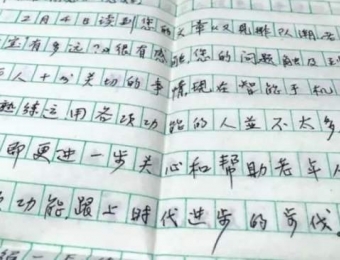 2月4日读到您的文章《又见排队潮 老
宝有多远?》很有感触 您的问题触及到
人十分关切的事情 现在智能手机
熟练运用各项功能的人并不太多
即更进一步关心和帮助老年人
功能跟上时代进步的步伐。